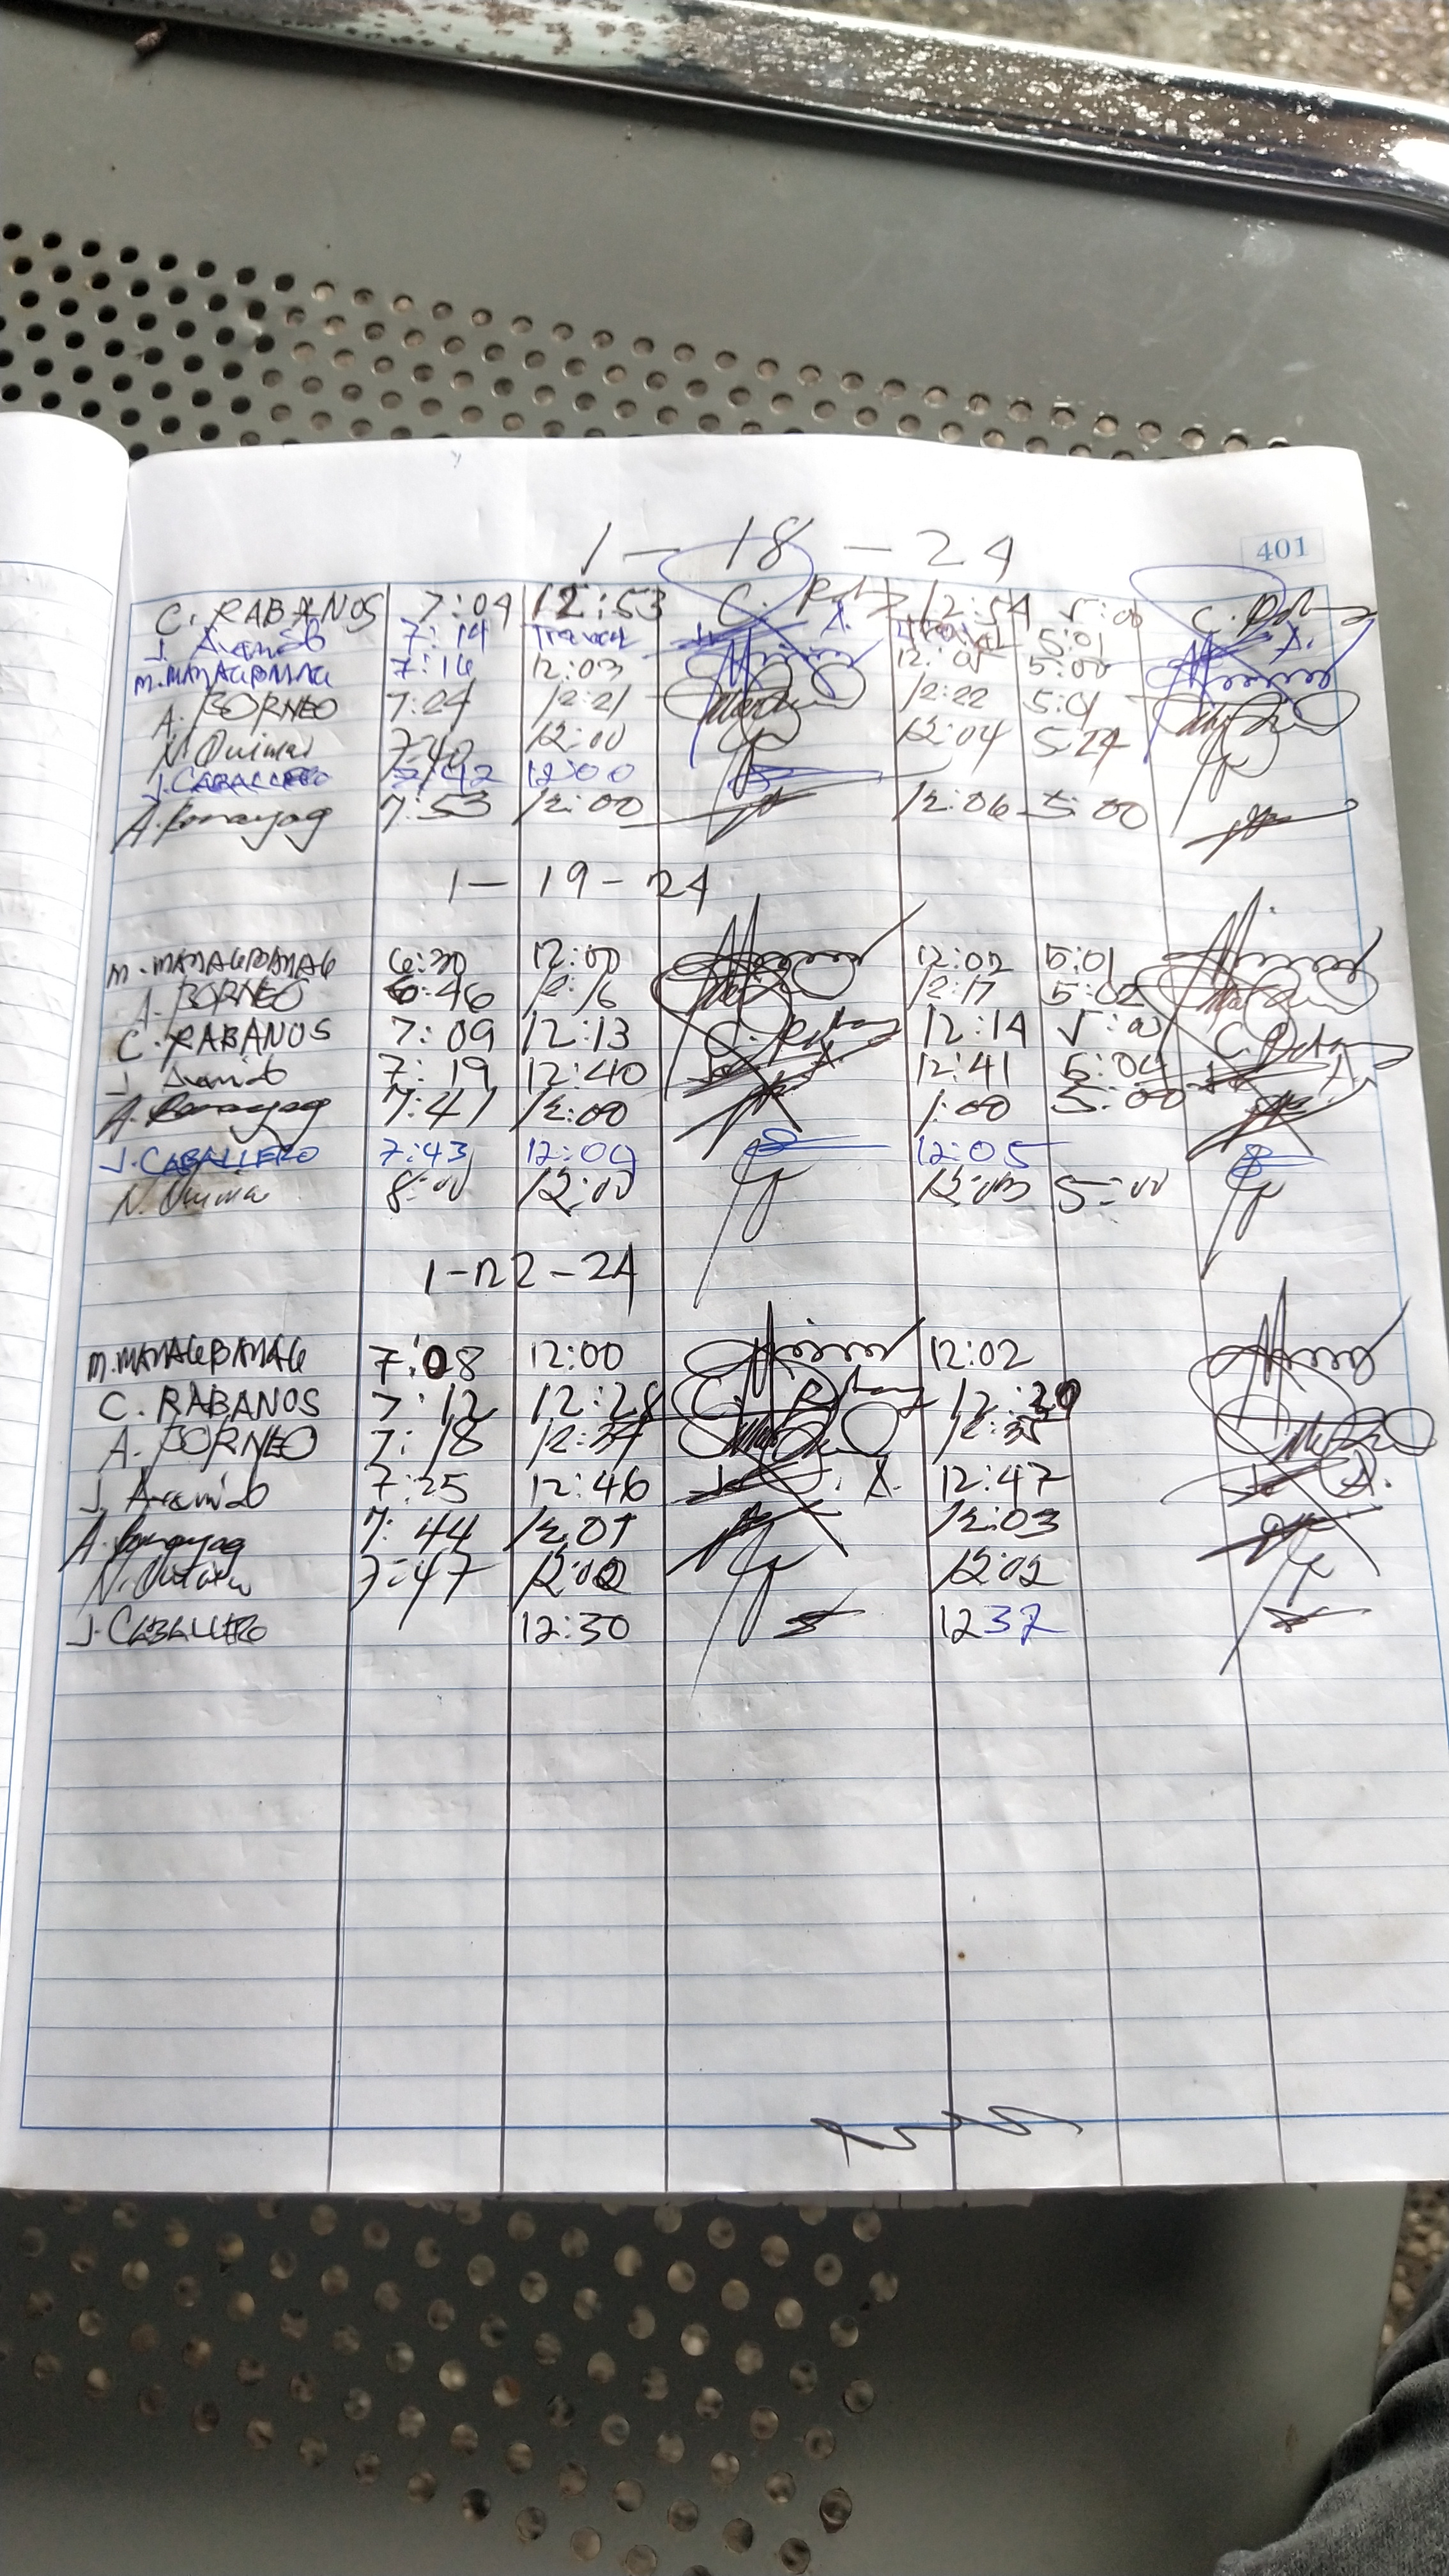 1-18-24
401
C. RABANOS 7:04 12:53 12:54 5:00
J. 7:14 Travel A. Travel 5:01 A.
M. MANAGBANAG 7:16 12:03 12:05 5:00
A. BORNEO 7:24 12:21 12:22 5:01
N. 7:40 12:00 12:04 5:24
J. CABALLERO 7:42 12:00
A. 7:53 12:00 12:06 5:00
1-19-24
M. MANAGBANAG 6:30 12:00 12:02 5:01
A. BORNEO 6:46 12:16 12:17 5:02
C. RABANOS 7:09 12:13 12:14 5:00
J. 7:19 12:40 A. 12:41 5:04 A.
A. 7:41 12:00 1:00 5:00
J. CABALLERO 7:43 12:05
N. 8:00 12:00 12:03 5:00
1-22-24
M. MANAGBANAG 7:08 12:00 12:02
C. RABANOS 7:12 12:28
A. BORNEO 7:18 12:34 12:35
J. 7:25 12:46 J. A. 12:47 A.
A. 7:44 12:01 12:03
N. 7:47 12:00 12:02
J. CABALLERO 12:30 1232